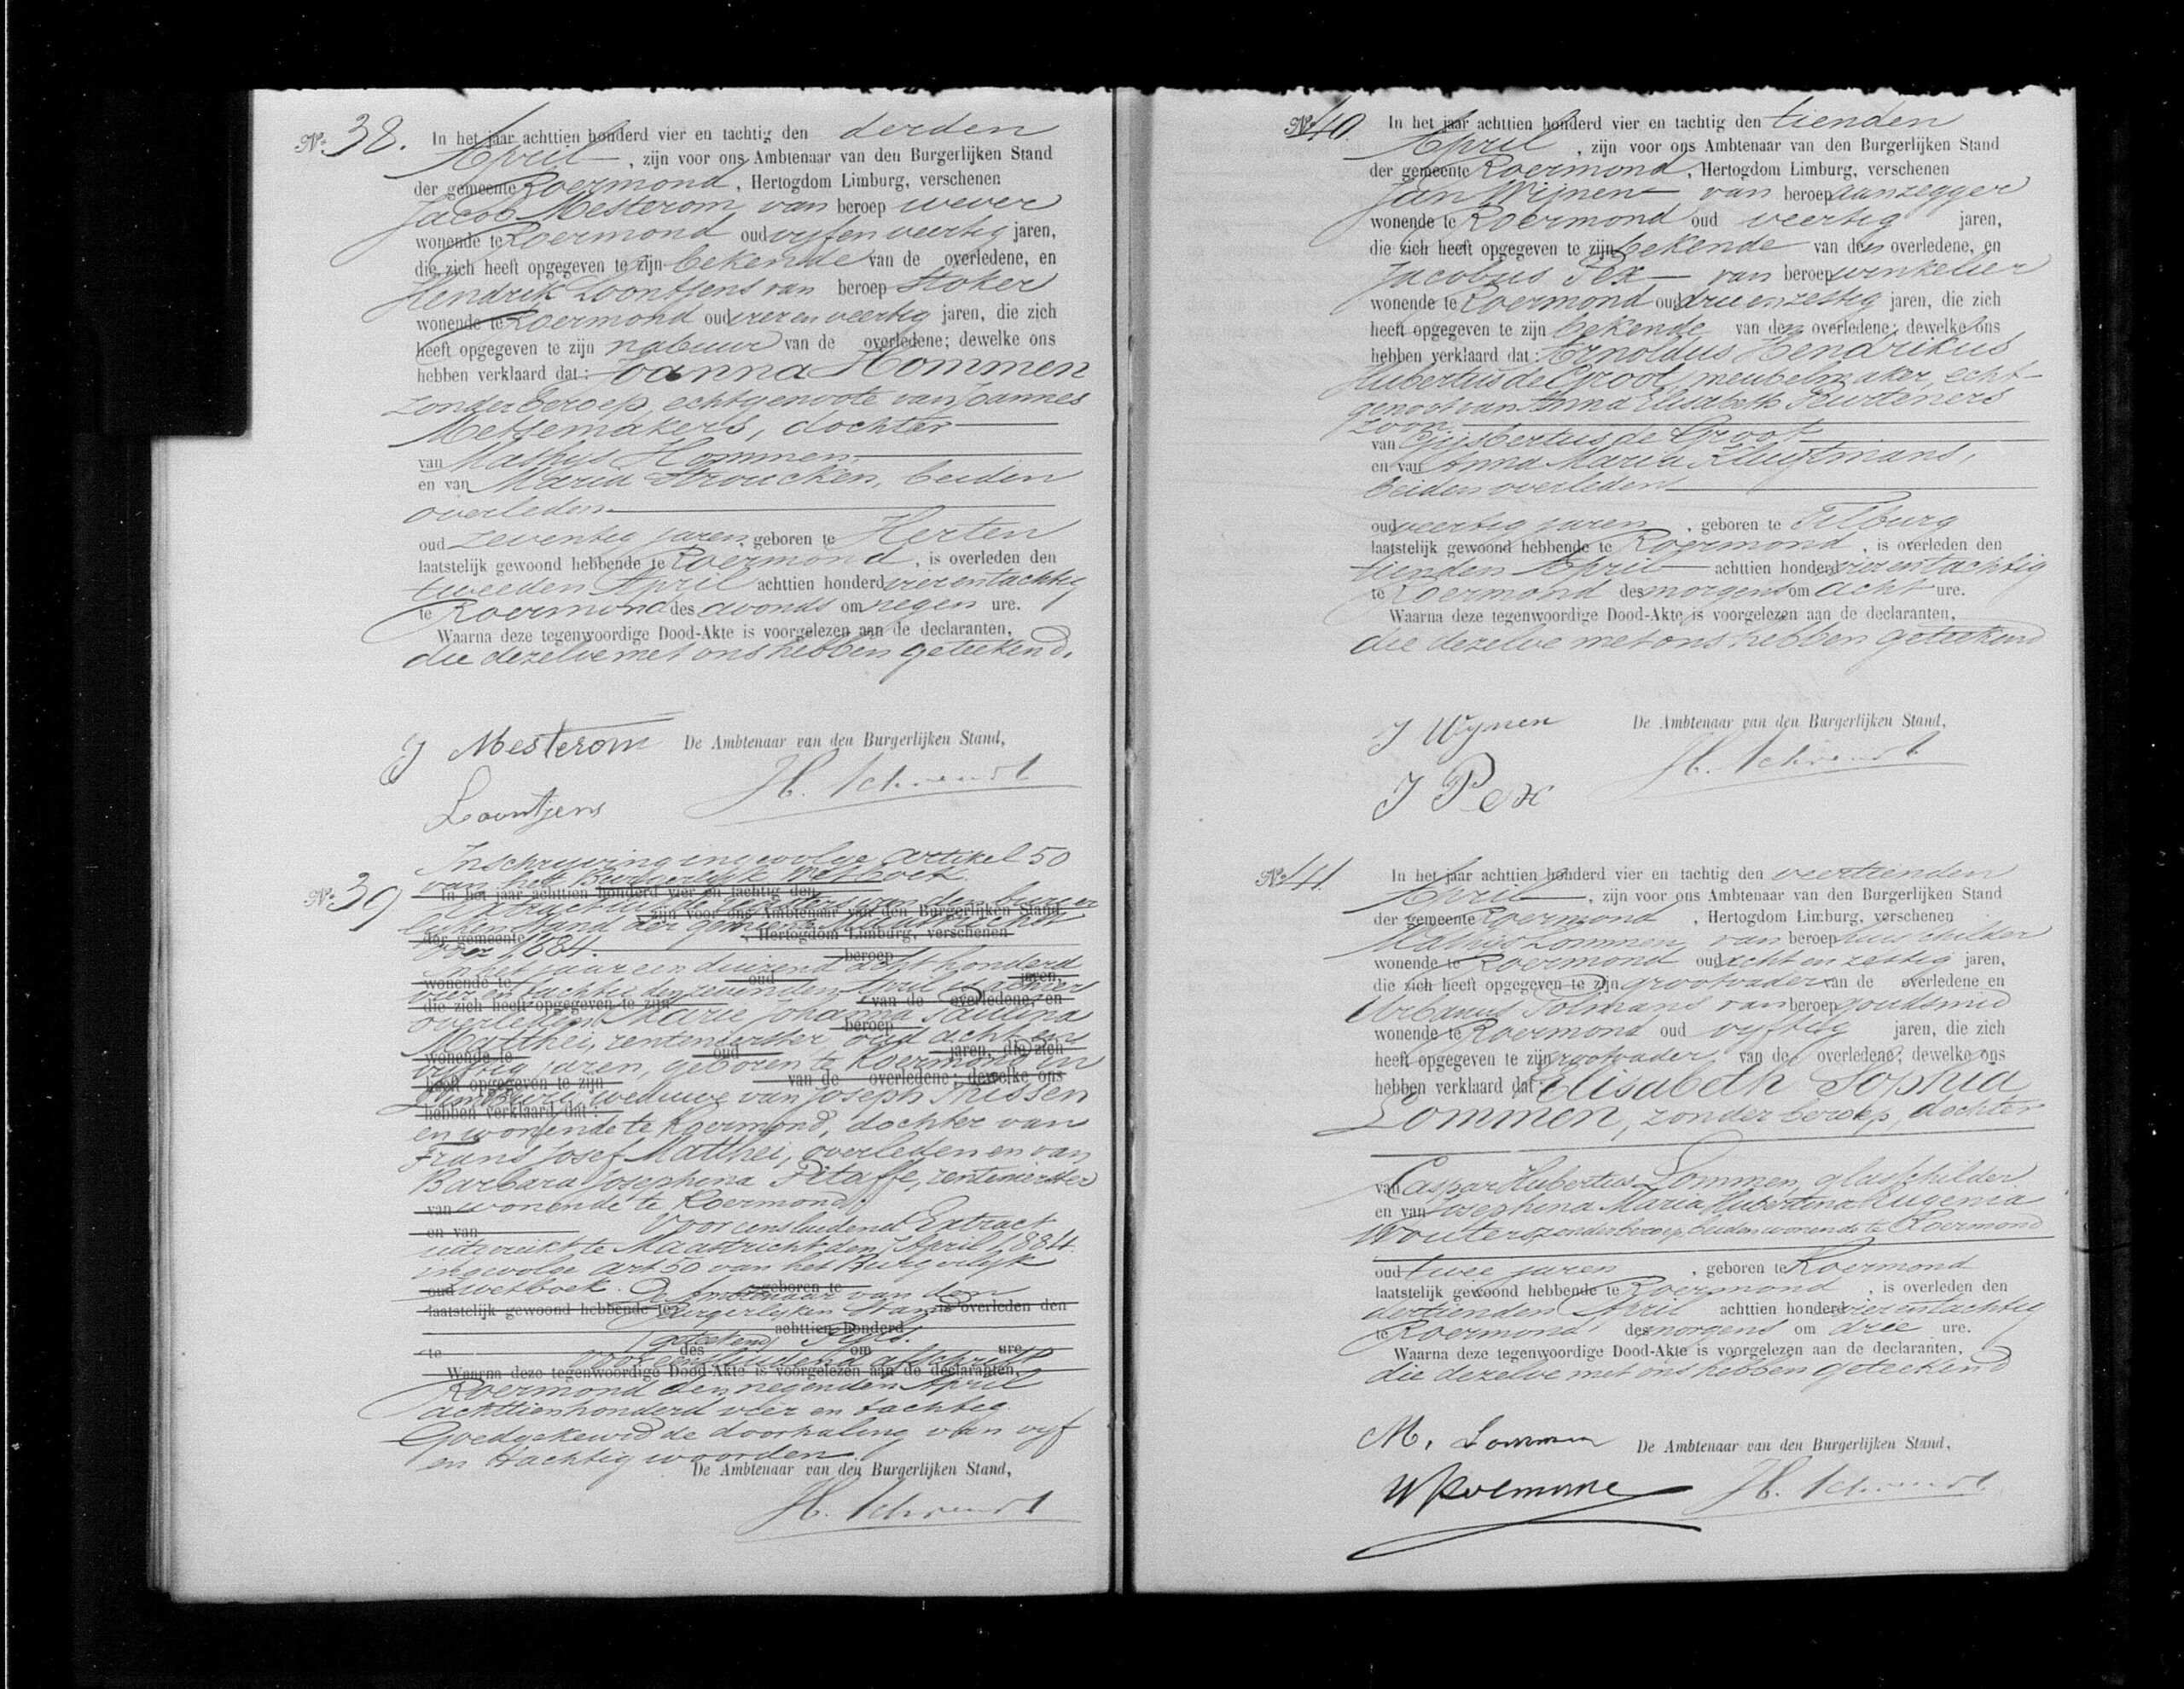 No. 38. In het jaar achttien honderd vier en tachtig den derden
April , zijn voor ons Ambtenaar van den Burgerlijken Stand
der gemeente Roermond, Hertogdom Limburg, verschenen
Jacob Mesterom van beroep wever
wonende te Roermond oud vyfen veertig jaren,
die zich heeft opgegeven te zijn bekende van de overledene, en
Hendrik Loontjens van beroep stoker
wonende te Roermond oud vier en veertig jaren, die zich
heeft opgegeven te zijn nabuur van de overledene; dewelke ons
hebben verklaard dat: Joanna Hommen
zonder beroep, echtgenoote van Joannes
Metsemakers, dochter
van Mathijs Hommen
en van Maria Stroucken, beiden
overleden
oud zeventig jaren, geboren te Herten
laatstelijk gewoond hebbende te Roermond, is overleden den
tweeden April achttien honderd vier en tachtig
te Roermond des avonds om negen ure.
Waarna deze tegenwoordige Dood-Akte is voorgelezen aan de declaranten,
die dezelve met ons hebben geteekend.
J Mesterom De Ambtenaar van den Burgerlijken Stand,
Loontjens
Inschryving ingevolge artikel 50
van het Burgerlijk Wetboek.
No. 39 In het jaar achttien honderd vier en tachtig den
Extract uit de registers van den burger
zijn voor ons Ambtenaar van den Burgerlijken Stand
lyken stand der gemeente Maastricht
der gemeente , Hertogdom Limburg, verschenen
voor 1884.
beroep
In het jaar een duizend acht honderd
wonende te oud jaren,
vier en tachtig den zevenden April is alhier
die zich heeft opgegeven te zijn van de overledene, en
overleden Marie Johanna Paulina
beroep
Matthei, rentenierster oud acht en
wonende te oud jaren, die zich
vyftig jaren, geboren te Roermond in
heeft opgegeven te zijn van de overledene; dewelke ons
Limburg, weduwe van Joseph Thissen
hebben verklaard dat:
en wonende te Roermond, dochter van
Frans Josef Matthei, overleden en van
Barbara Josephina Petaffe, rentenierster
van wonende te Roermond.
en van Voor eensluidend Extract
uitgereikt te Maastricht den 7 April 1884.
ingevolge art 50 van het Burgerlijk
oud wetboek. geboren te
De Ambtenaar van den
laatstelijk gewoond hebbende te is overleden den
Burgerlijken Stand
achttien honderd
(geteekend)
te des om ure
Voor eensluidend afschrift
Waarna deze tegenwoordige Dood-Akte is voorgelezen aan de declaranten,
Roermond den negenden April
achttienhonderd vier en tachtig.
Goedgekeurd de doorhaling van vyf
en tachtig woorden.
De Ambtenaar van den Burgerlijken Stand,
No. 40. In het jaar achttien honderd vier en tachtig den tienden
April , zijn voor ons Ambtenaar van den Burgerlijken Stand
der gemeente Roermond, Hertogdom Limburg, verschenen
Jan Wijnen van beroep aanzegger
wonende te Roermond oud veertig jaren,
die zich heeft opgegeven te zijn bekende van den overledene, en
Jacobus Pex van beroep winkelier
wonende te Roermond oud drie en zestig jaren, die zich
heeft opgegeven te zijn bekende van den overledene; dewelke ons
hebben verklaard dat: Arnoldus Hendrikus
Hubertus de Groot, meubelmaker, echt-
genoot van Anna Elisabeth
zoon
van Gijsbertus de Groot
en van Anna Maria
beiden overleden
oud veertig jaren, geboren te Tilburg
laatstelijk gewoond hebbende te Roermond, is overleden den
tienden April achttien honderd vier en tachtig
te Roermond des morgens om acht ure.
Waarna deze tegenwoordige Dood-Akte is voorgelezen aan de declaranten,
die dezelve met ons hebben geteekend
J Wijnen De Ambtenaar van den Burgerlijken Stand,
J Pex
No. 41. In het jaar achttien honderd vier en tachtig den veertienden
April , zijn voor ons Ambtenaar van den Burgerlijken Stand
der gemeente Roermond, Hertogdom Limburg, verschenen
Mathijs Lommen van beroep huisschilder
wonende te Roermond oud acht en zestig jaren,
die zich heeft opgegeven te zijn grootvader van de overledene en
Urbanus Tolmans van beroep goudsmid
wonende te Roermond oud vyftig jaren, die zich
heeft opgegeven te zijn grootvader van de overledene; dewelke ons
hebben verklaard dat: Elisabeth Sophia
Lommen, zonder beroep, dochter
van Caspar Hubertus Lommen, glasschilder
en van Josephina Maria Hubertina Eugenia
Wouters zonder beroep, beiden wonende te Roermond
oud twee jaren , geboren te Roermond
laatstelijk gewoond hebbende te Roermond , is overleden den
dertienden April achttien honderd vier en tachtig
te Roermond des morgens om drie ure.
Waarna deze tegenwoordige Dood-Akte is voorgelezen aan de declaranten,
die dezelve met ons hebben geteekend
M. Lommen De Ambtenaar van den Burgerlijken Stand,